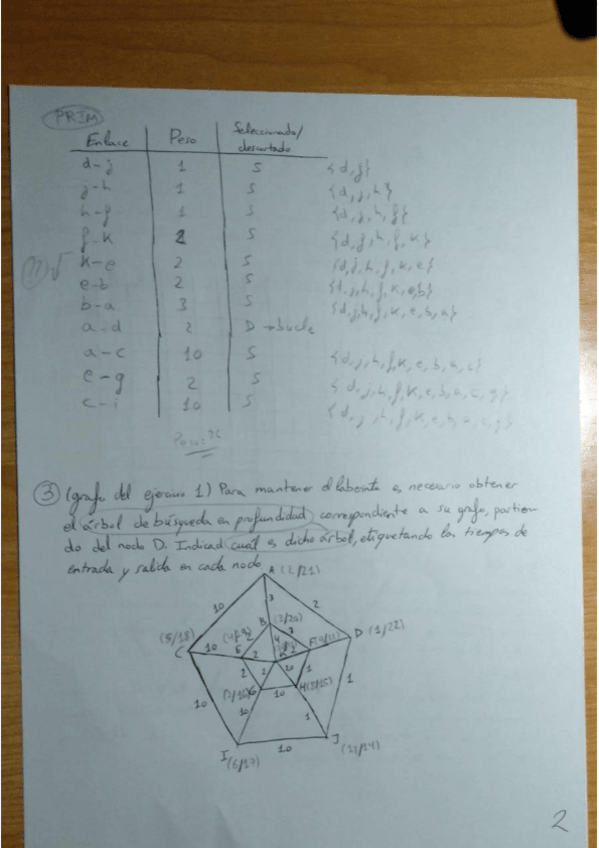 PRIM
Enlace Peso Seleccionado/
descartado
d-j 1 S {d,j}
j-h 1 S {d,j,h}
h-f 1 S {d,j,h,f}
f-k 2 S {d,j,h,f,k}
k-e 2 S {d,j,h,f,k,e}
e-b 2 S {d,j,h,f,k,e,b}
b-a 3 S {d,j,h,f,k,e,b,a}
a-d 2 D →bucle
a-c 10 S {d,j,h,f,k,e,b,a,c}
e-g 2 S {d,j,h,f,k,e,b,a,c,g}
c-i 10 S
③ (grafo del ejercicio 1) Para mantener el laberinto es necesario obtener
el árbol de búsqueda en profundidad correspondiente a su grafo, partien
do del nodo D. Indicad cuál es dicho árbol, etiquetando los tiempos de
entrada y salida en cada nodo.
A (2/21)
10 3 2
B (3/20)
(5/18) 4
C 10 E 2 K F D (1/22)
2 20 1 1
G 10 H
10 10 1
I 10 J
(6/17) (13/14)
2